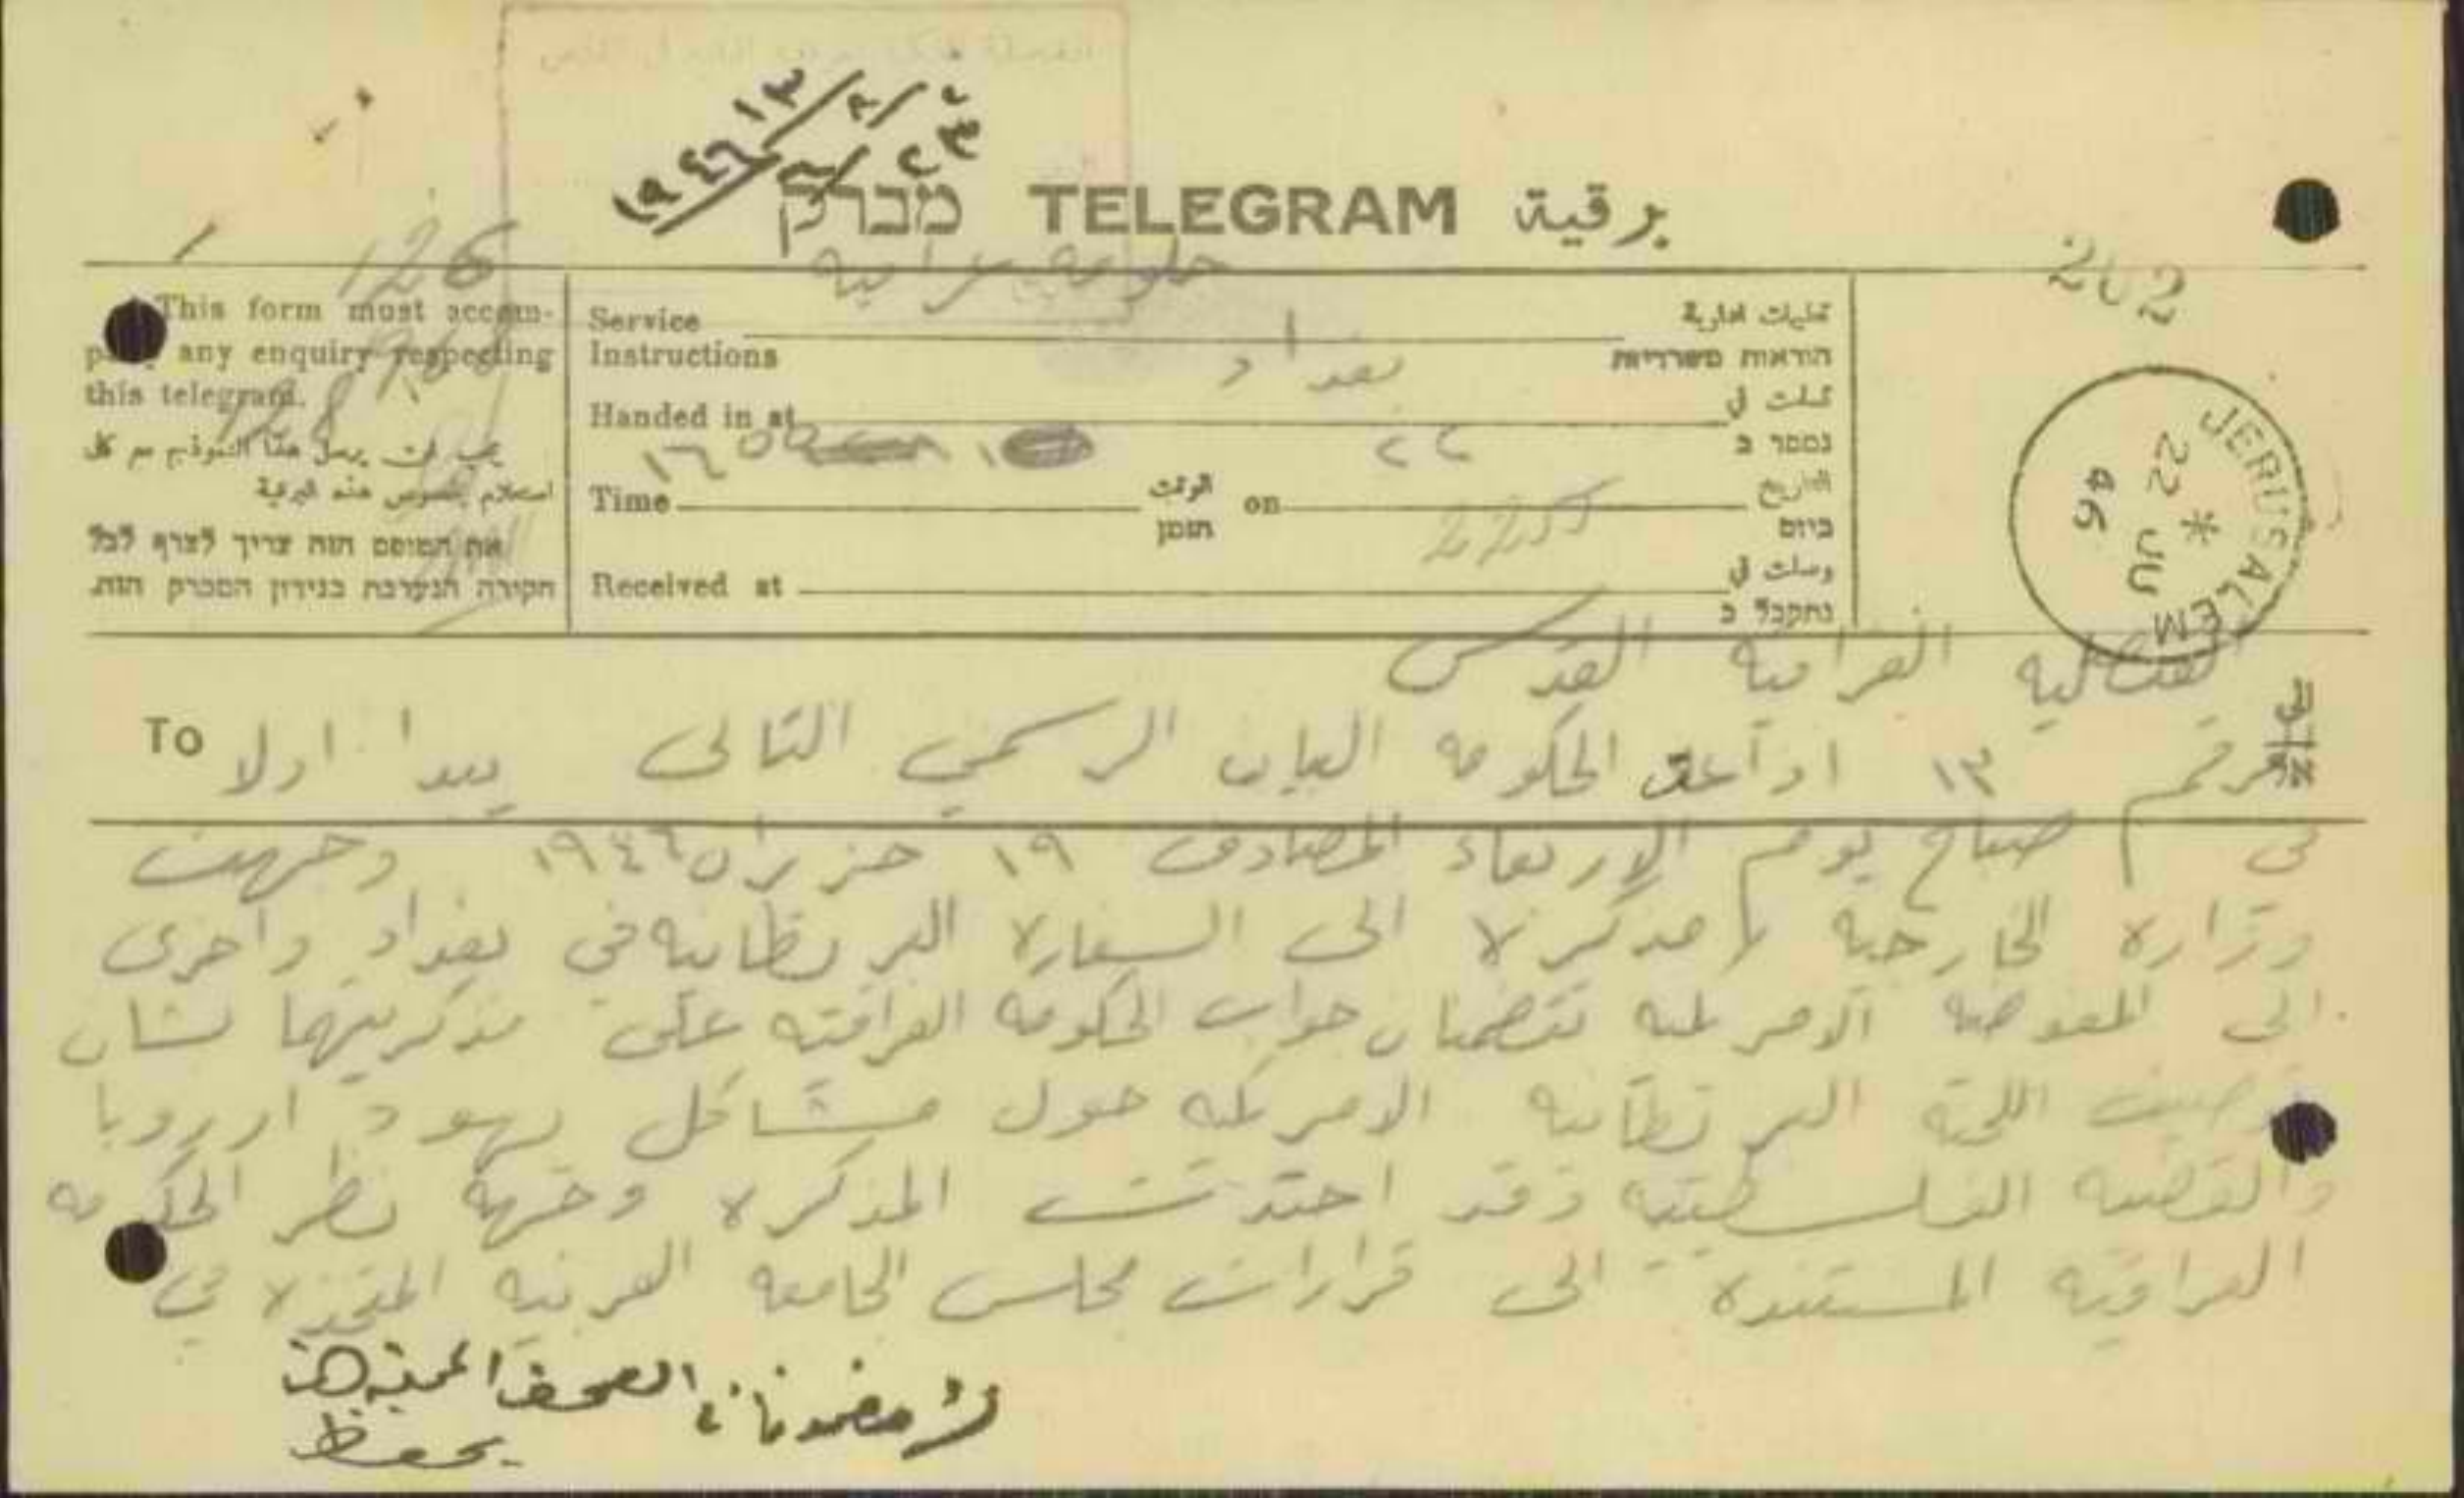 ١٣
٢٣/٦/١٩٤٦
מברק TELEGRAM برقية
126
202
حكومة عراقية
This form must accom-
pany any enquiry respecting
this telegram.
يجب ان يرسل هذا النموذج مع كل
استعلام بخصوص هذه البرقية
את הטופס הזה צריך לצרף לכל
חקירה הנערכת בנידון המברק הזה.
Service
Instructions
تعليمات ادارية
הוראות משרדיות
بغداد
Handed in at
سلمت في
נמסר ב
١٦٥٥
٢٢
Time
الوقت
הזמן
on
التاريخ
ביום
2255
Received at
وصلت في
נתקבל ב
JERUSALEM
22 JU
46
القنصليه العراقيه القدس
To
الى
אל
رقم ١٣ اذاعت الحكومه البيان الرسمي التالى يبدا اولا
في صباح يوم الاربعاء المصادف ١٩ حزيران ١٩٤٦ وجهت
وزاره الخارجيه مذكره الى السفاره البريطانيه في بغداد واخرى
الى المفوضيه الامريكيه تتضمنان جواب الحكومه العراقيه على مذكرتيهما بشان
اللجنه البريطانيه الامريكيه حول مشاكل يهود اوروبا
والقضيه الفلسطينيه وقد احتوت المذكره وجهة نظر الحكومه
العراقيه المستنده الى قرارات مجلس الجامعه العربيه المتخذه في
الصحف المحلية
يحفظ